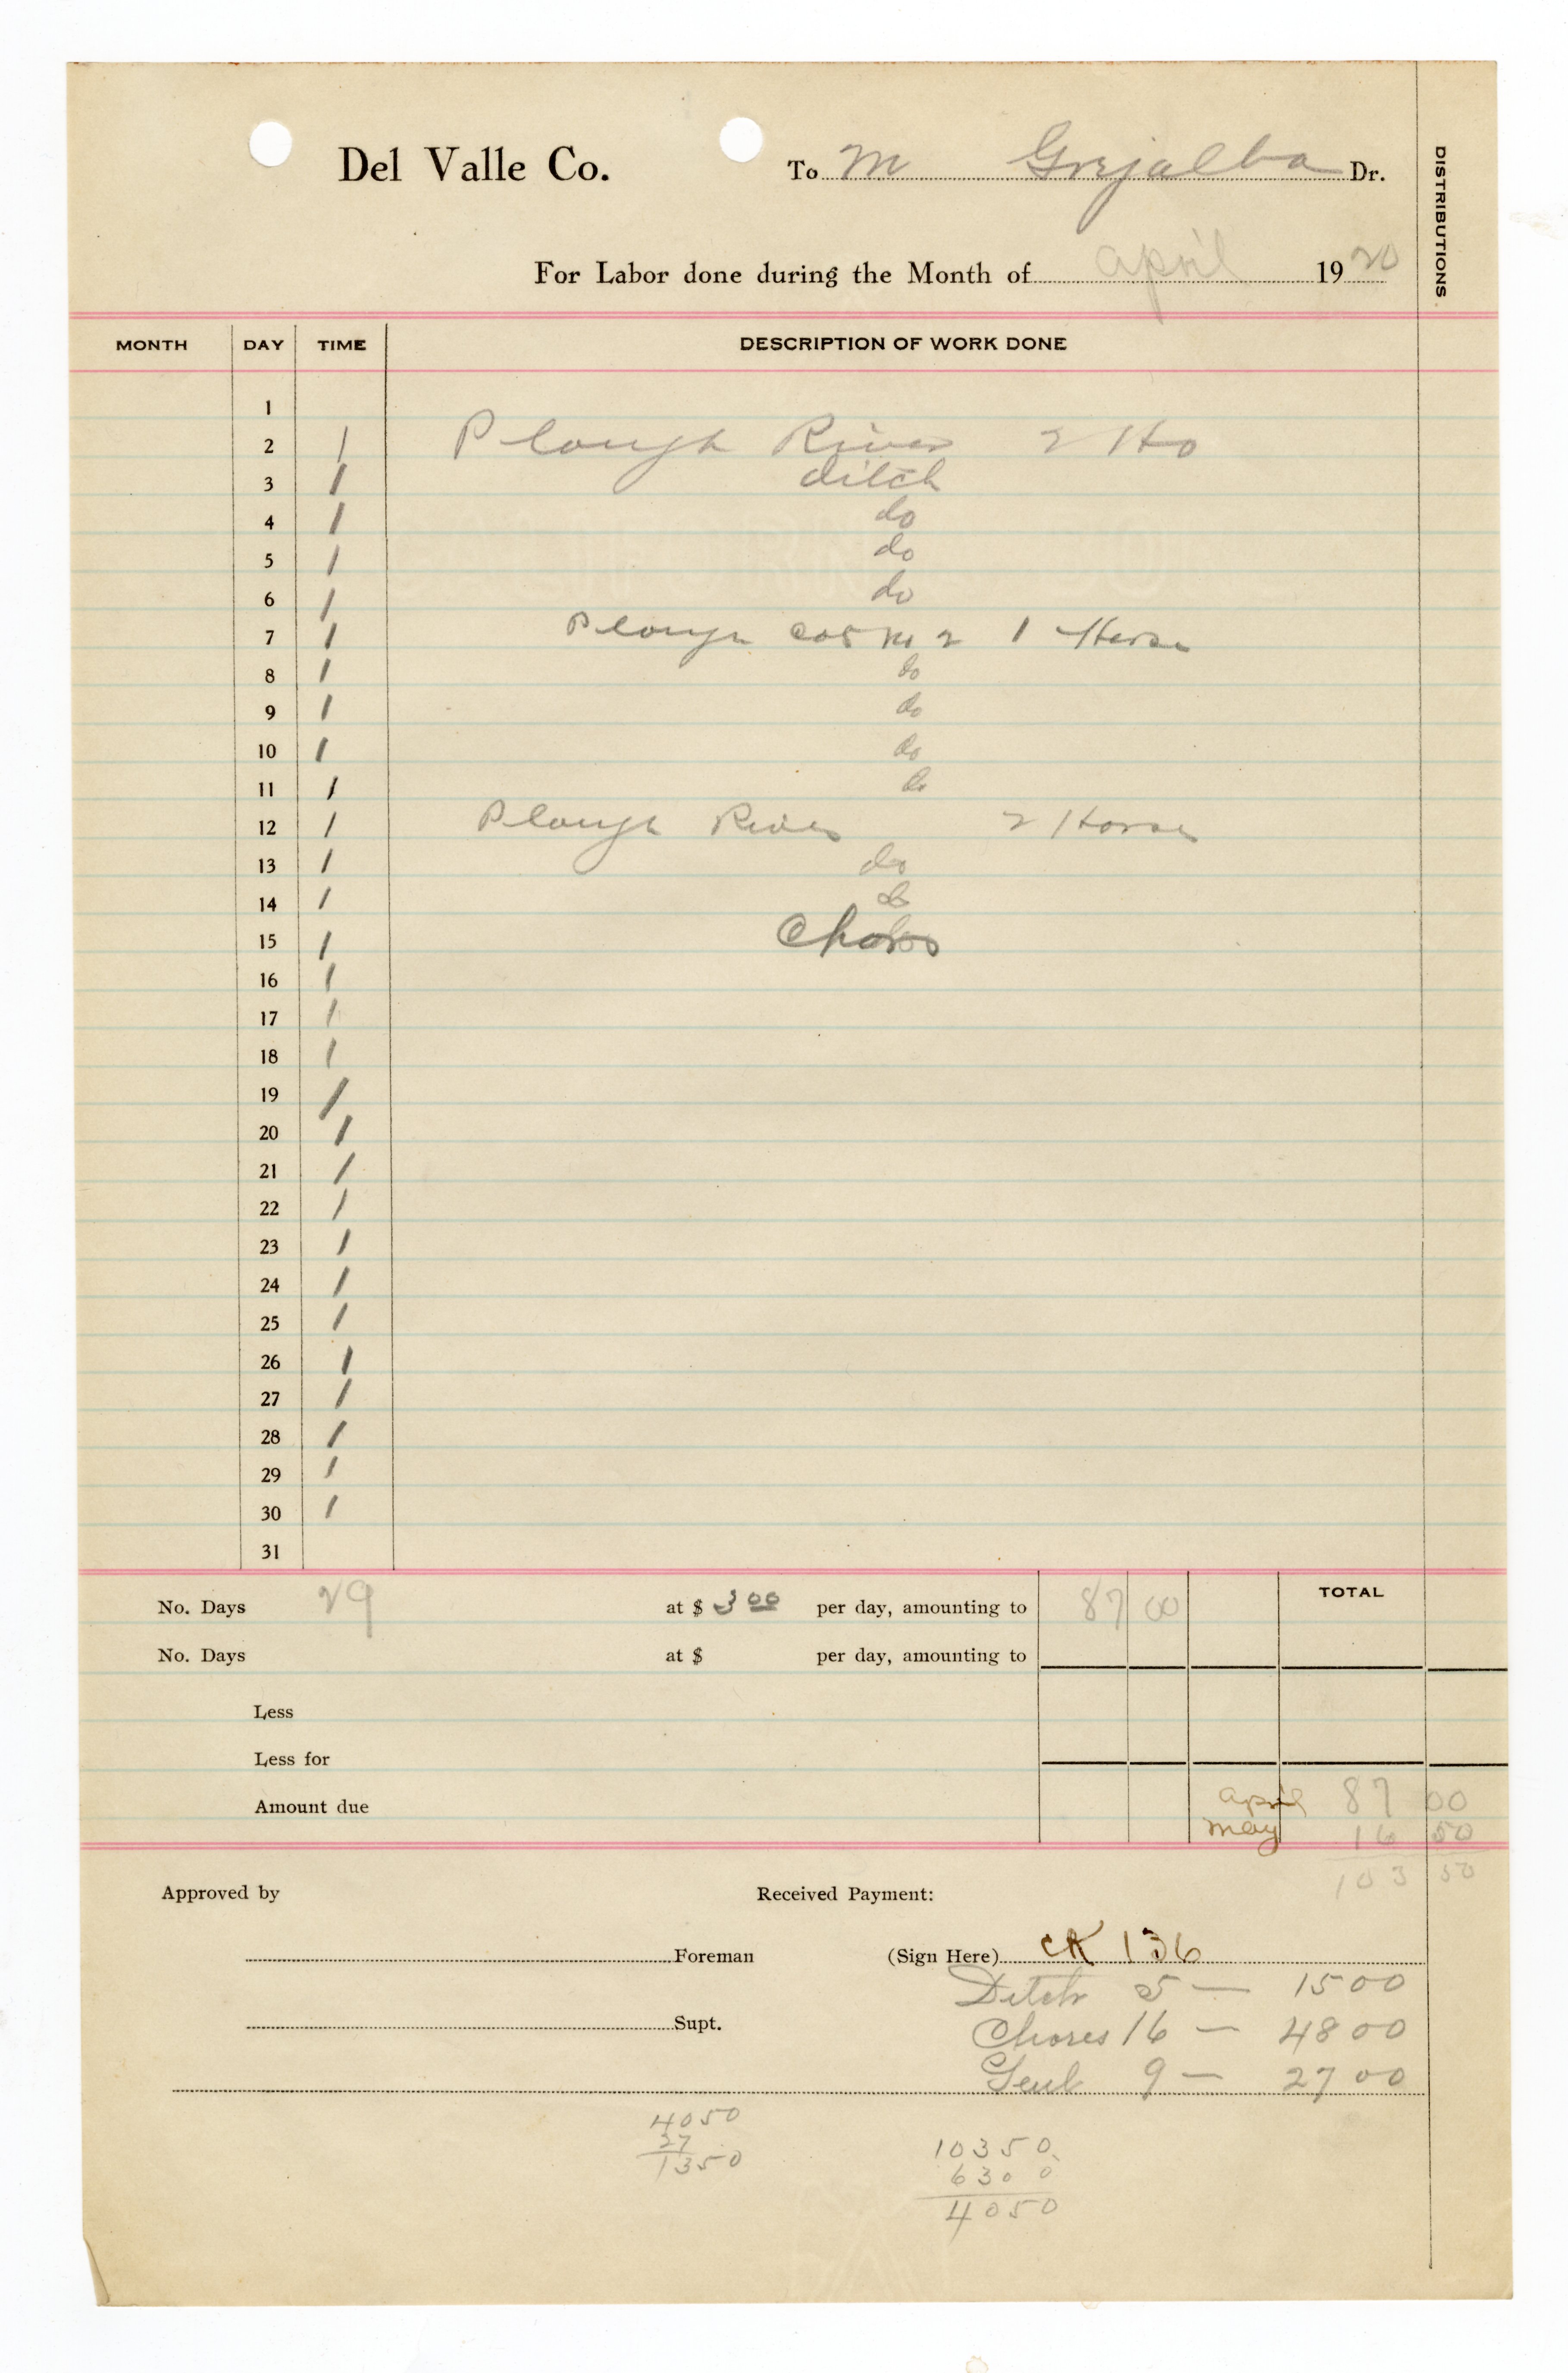 Del Valle Co. To M Grijalba Dr.
DISTRIBUTIONS
For Labor done during the Month of April 1920
MONTH DAY TIME DESCRIPTION OF WORK DONE
1
2 1 Plough River 2 Ho
3 1 ditch
4 1 do
5 1 do
6 1 do
7 1 Plough 1 Horse
8 1 do
9 1 do
10 1 do
11 1 do
12 1 Plough River 2 Horse
13 1 do
14 1 do
15 1 Chores
16 1
17 1
18 1
19 1
20 1
21 1
22 1
23 1
24 1
25 1
26 1
27 1
28 1
29 1
30 1
31
No. Days 29 at $ 3 00 per day, amounting to 87 00 TOTAL
No. Days at $ per day, amounting to
Less
Less for
Amount due April 87 00
May 16 50
103 50
Approved by Received Payment:
Foreman (Sign Here) CK 136
Ditch 5 — 15 00
Supt. Chores 16 — 48 00
9 — 27 00
4050
27
1350
10350
6300
4050